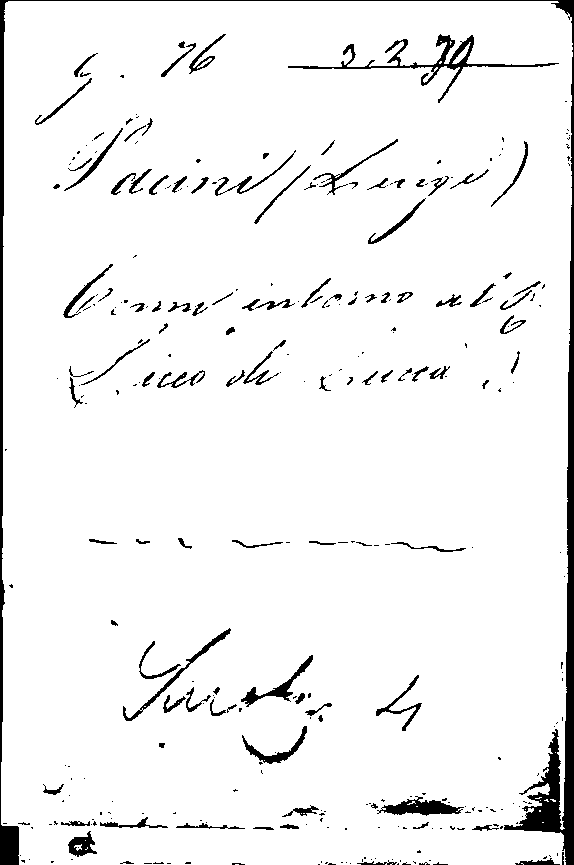 G. 76 3.2.39
Pacini (Luigi)
Cenni intorno al R.
Liceo di Lucca
4